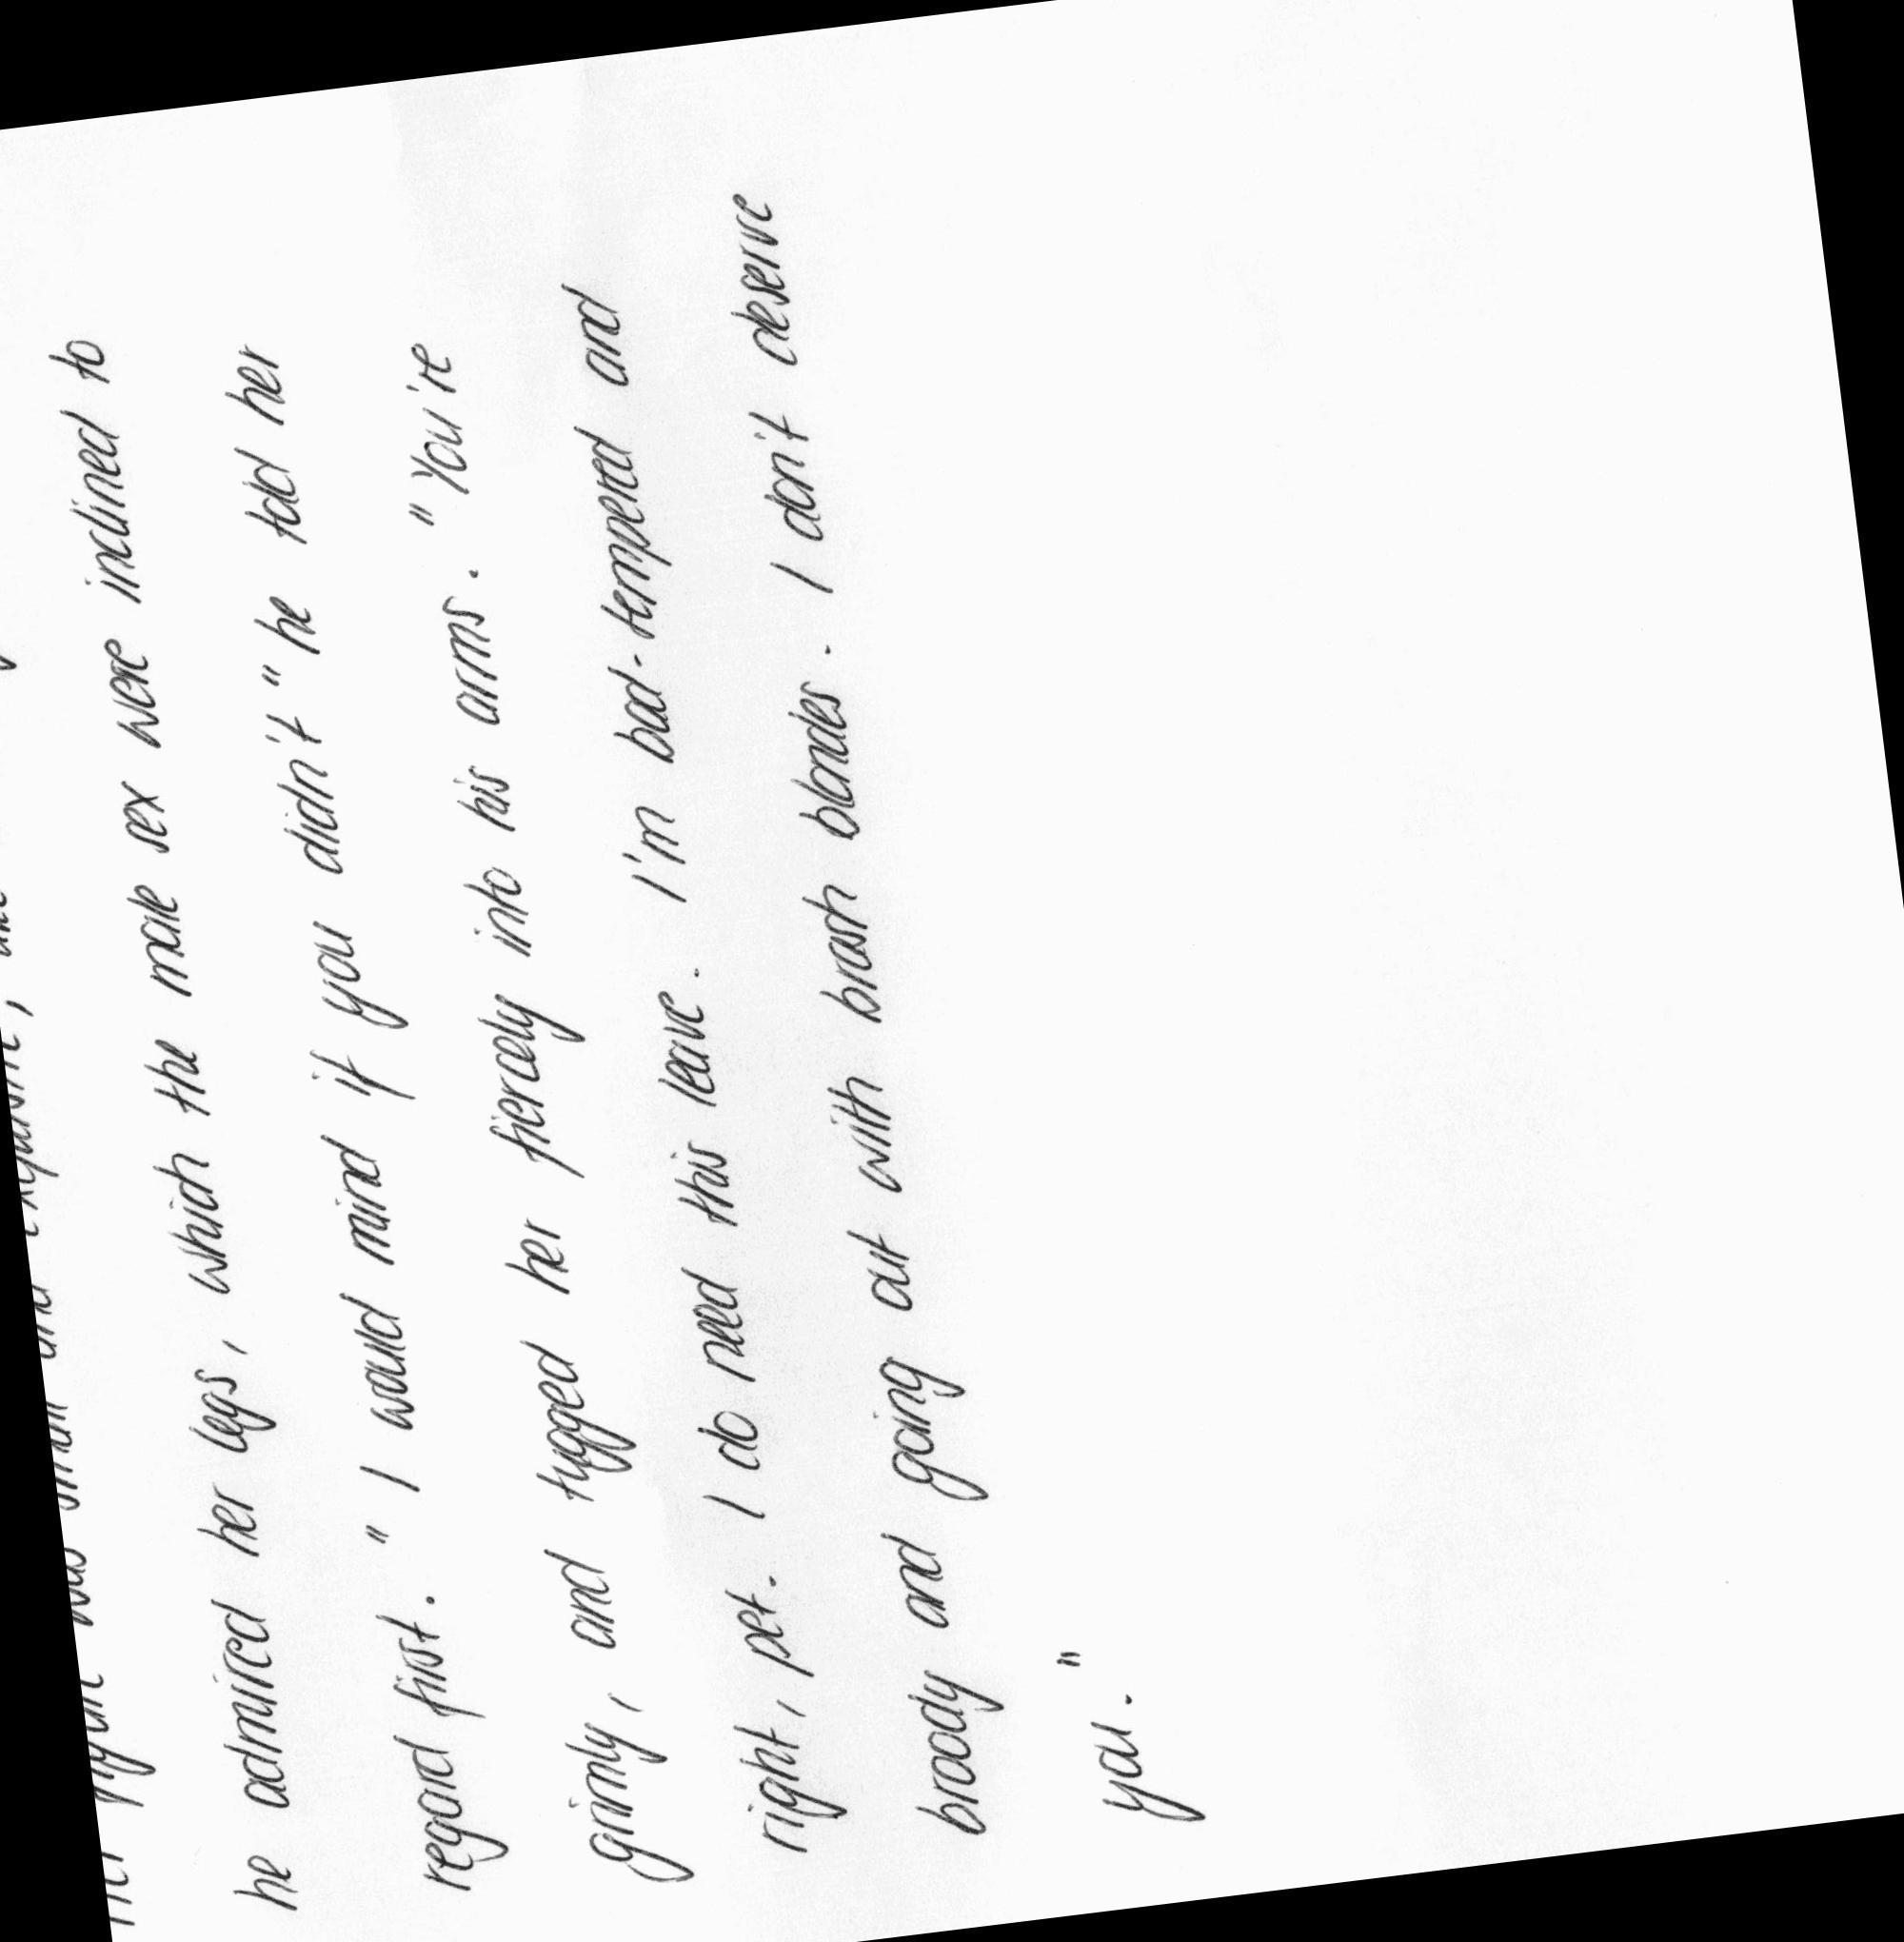 he admired her legs, which the male sex were inclined to
regard first. "I would mind if you didn't" he told her
grimly, and tugged her fiercely into his arms. "You're
right, pet. I do need this leave. I'm bad-tempered and
broody and going out with brash blondes. I don't deserve
you."